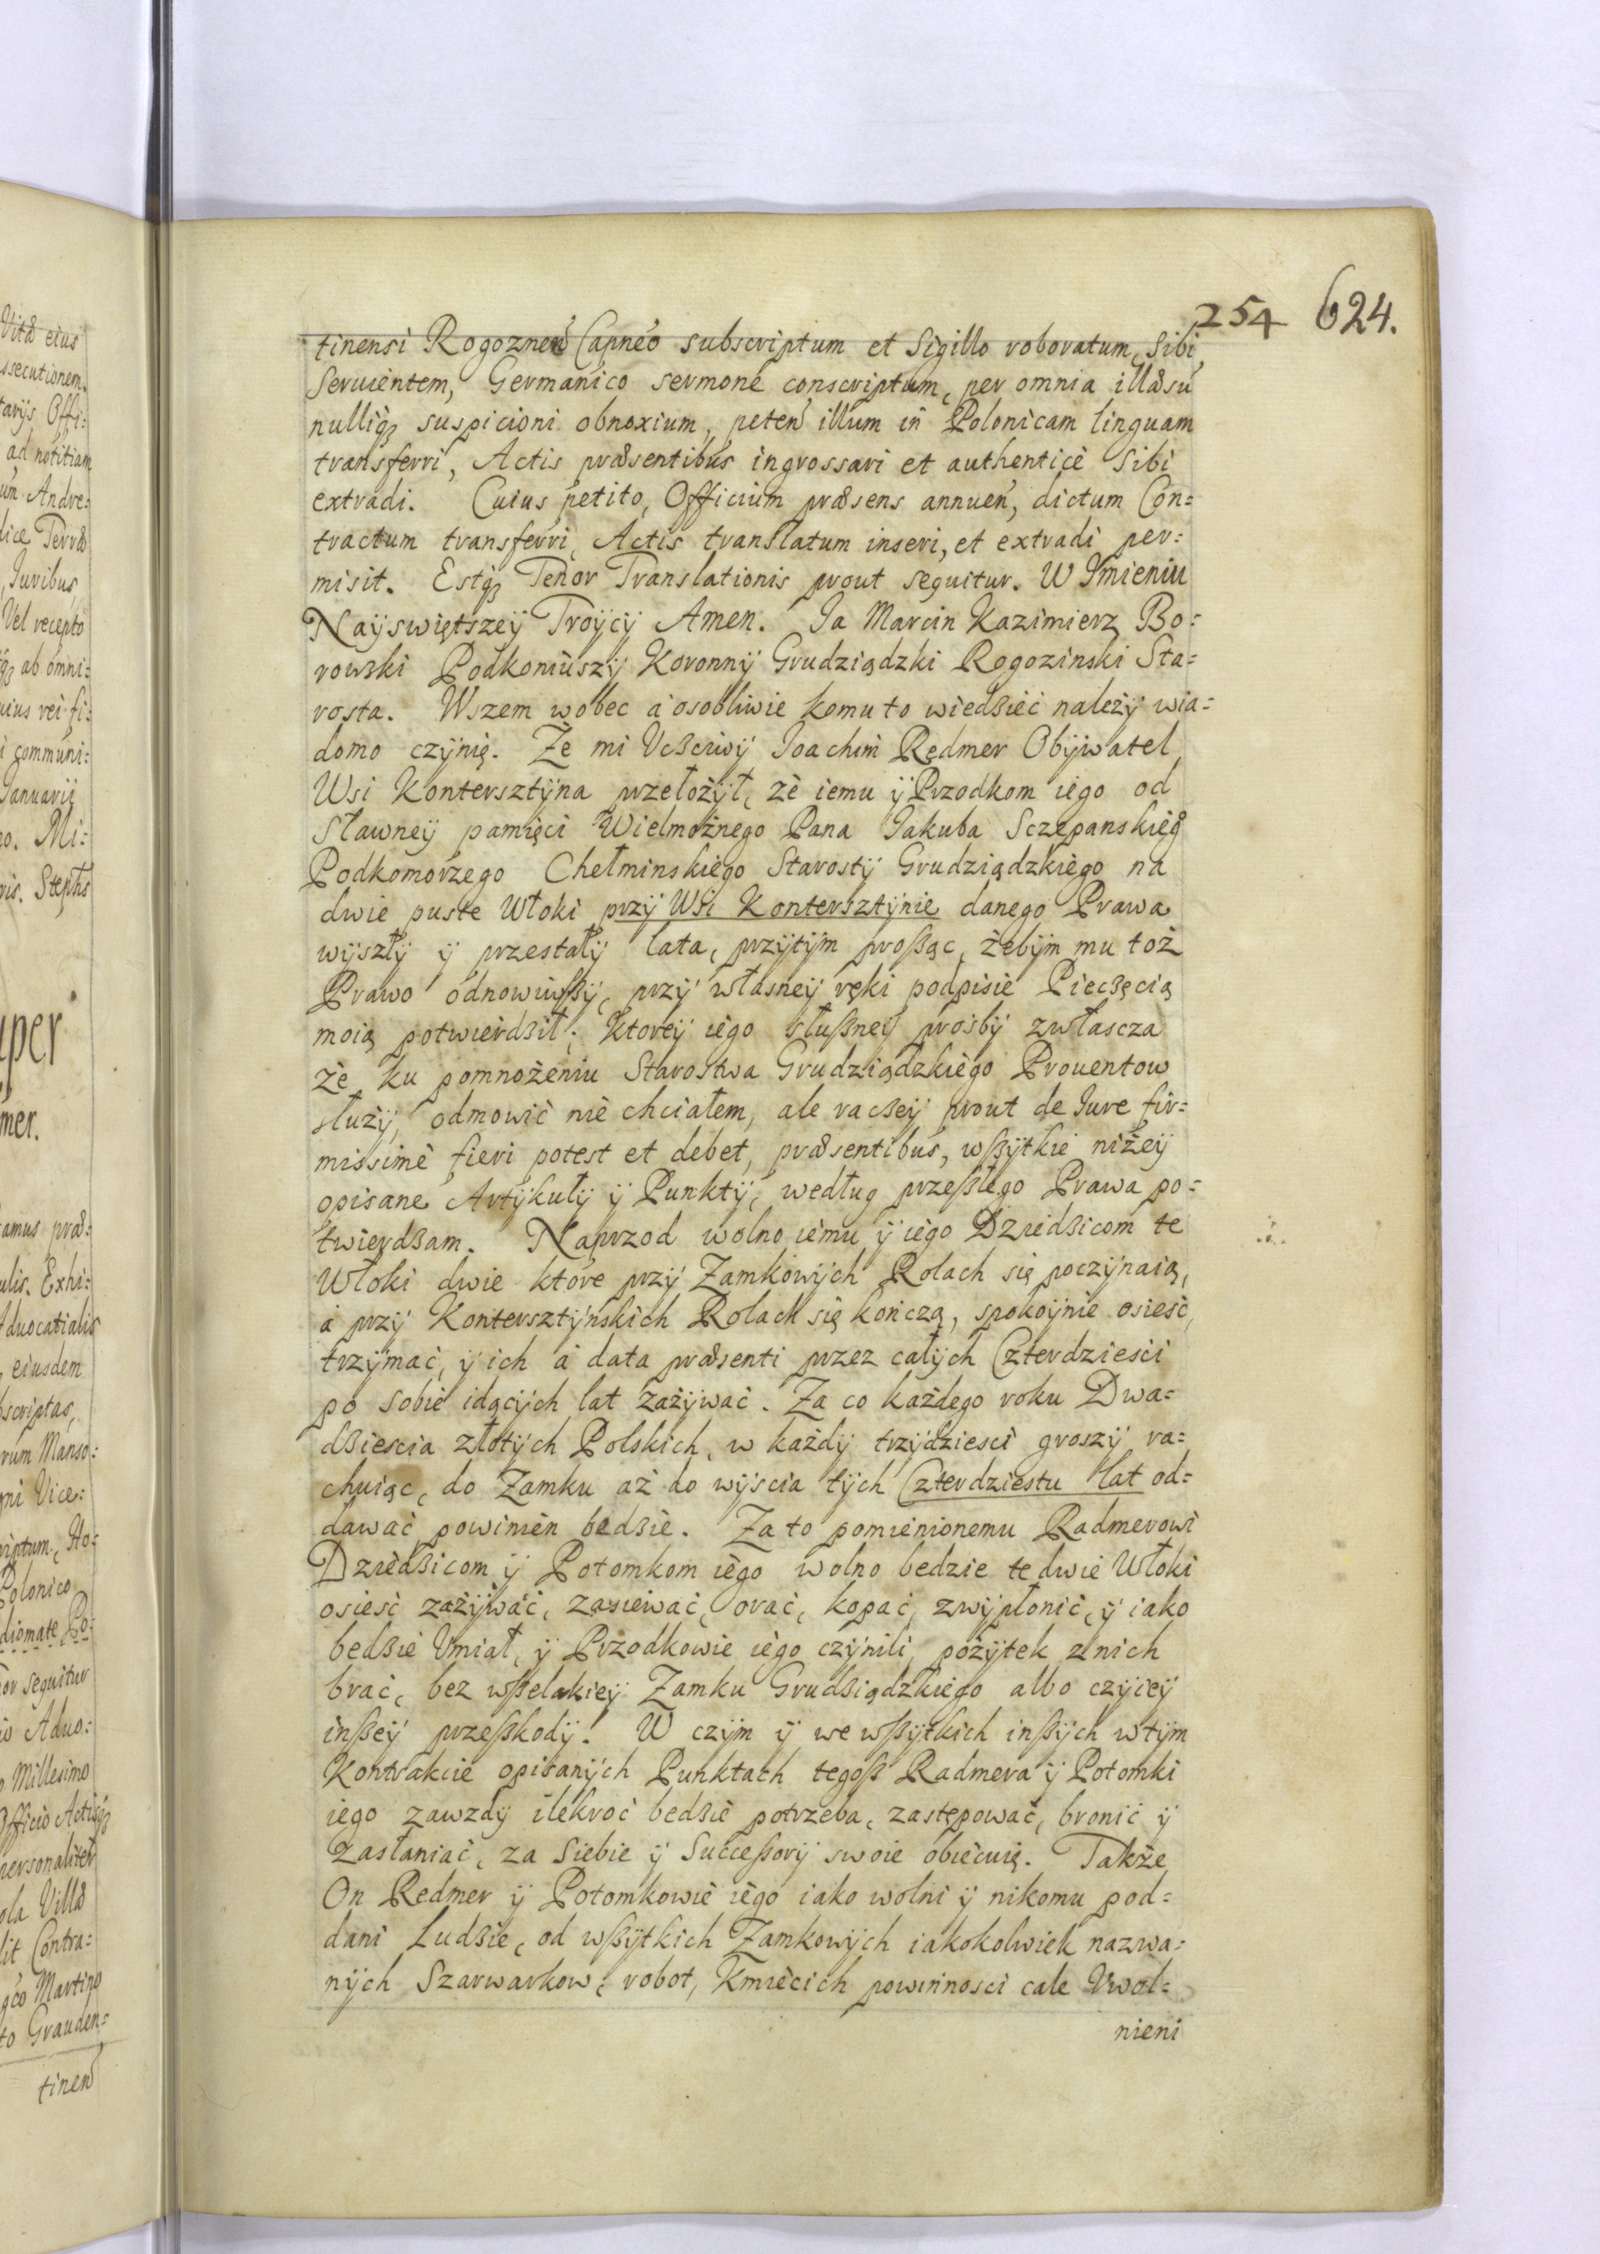 254 624.
tinensi Rogoznen Capneo subscriptum et Sigillo roboratum, Sibi
Seruientem, Germanico sermone conscriptum, per omnia illæsu
nulliq3 suspicioni obnoxium, peten illum in Polonicam linguam
transferri, Actis præsentibus ingrossari et authentice Sibi
extradi. Cuius petito, Officium præsens annuen, dictum Con=
tractum transferri, Actis translatum inseri, et extradi per=
misit. Estq3 Tenor Translationis prout sequitur. W Jmieniu
Nayswiętszey Troycy Amen. Ja Marcin Kazimierz Bo=
rowski Podkoniuszy Koronny Grudziądzki Rogozinski Sta=
rosta. Wszem wobec a osobliwie komu to wiedßieć należy wia=
domo czynię. Że mi Vcßciwy Joachim Redmer Obywatel
Wsi Kontersztyna przełożył, że iemu y Przodkom iego od
Sławney pamięci Wielmożnego Pana Jakuba Sczepanskieg
Podkomorzego Chełminskiego Starosty Grudziądzkiego na
dwie puste Włoki przy Wsi Kontersztynie danego Prawa
wyszły y przestały lata, przytym proßąc, żebym mu toż
Prawo odnowiwßy, przy własney ręki podpisie Piecßęcią
moią potwierdßił; Ktorey iego słußney prosby zwłascza
że ku pomnożeniu Starostwa Grudziądzkiego Prouentow
służy, odmowić nie chciałem, ale racßey prout de Jure fir=
missime fieri potest et debet, præsentibus, wßytkie niżey
opisane Artykuły y Punkty, według przeßłego Prawa po=
twierdßam. Naprzod wolno iemu y iego Dziedßicom te
Włoki dwie ktore przy Zamkowych Rolach się poczynaią,
a przy Kontersztynskich Rolach się kończą, spokoynie osieść,
trzymać, y ich a data præsenti przez całych Czterdziesci
po sobie idących lat zażywać. Za co każdego roku Dwa=
dßiescia złotych Polskich, w każdy trzydziesci groszy ra=
chuiąc, do Zamku aż do wyscia tych Czterdziestu lat od=
dawać powinien bedßie. Za to pomienionemu Radmerowi
Dziedßicom y Potomkom iego wolno bedzie te dwie Włoki
osieść zażywać, zasiewać, orać, kopać, zwypłonić, y iako
bedßie Vmiał, y Przodkowie iego czynili, pożytek z nich
brać, bez wßelakiey Zamku Grudßiądzkiego albo czyiey
inßey przeßkody. W czym y we wßytkich inßych wtym
Kontrakcie opisanych Punktach tegoß Radmera y Potomki
iego zawzdy ilekroć bedßie potrzeba, zastępować, bronić y
Zasłaniać, za Siebie y Succeßory swoie obiecuię. Także
On Redmer y Potomkowie iego iako wolni y nikomu pod=
dani Ludßie, od wßytkich Zamkowych iakokolwiek nazwa=
nych Szarwarkow, robot, Kmiecich powinnosci cale Vwol=
nieni